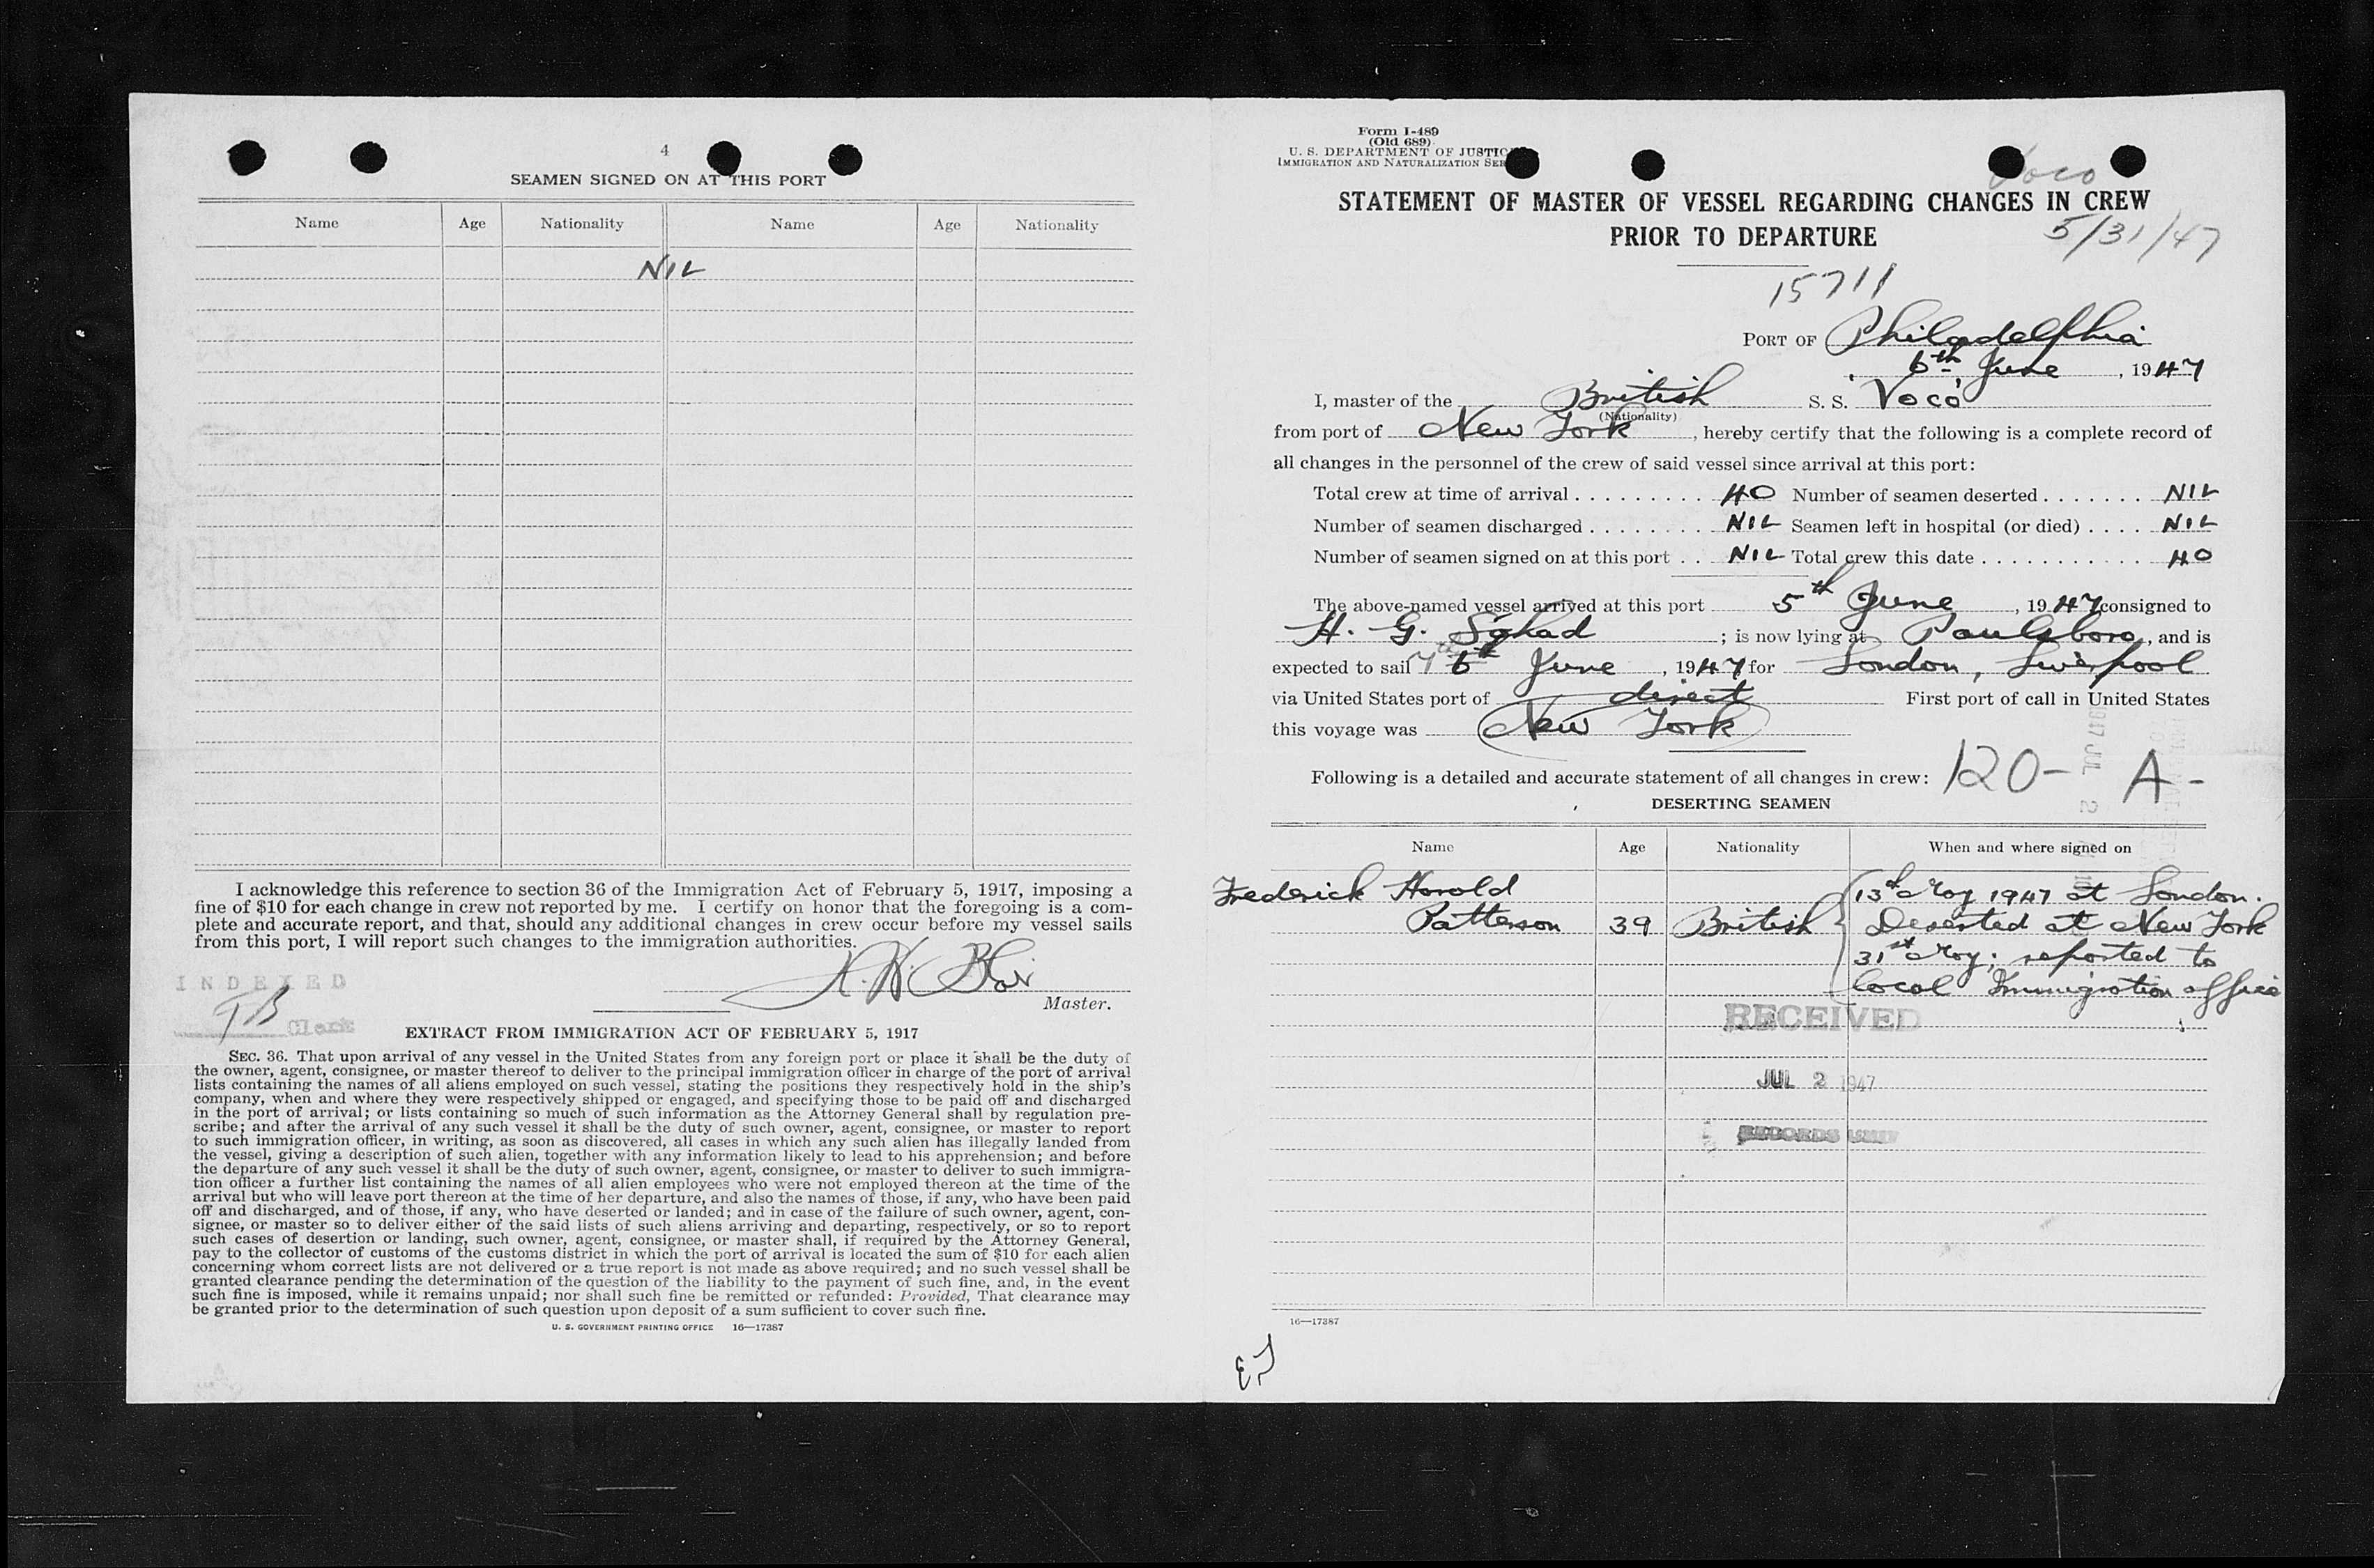 4
SEAMEN SIGNED ON AT THIS PORT
Name Age Nationality Name Age Nationality
NIL
I acknowledge this reference to section 36 of the Immigration Act of February 5, 1917, imposing a
fine of $10 for each change in crew not reported by me. I certify on honor that the foregoing is a com-
plete and accurate report, and that, should any additional changes in crew occur before my vessel sails
from this port, I will report such changes to the immigration authorities.
Blair
Master.
INDEXED
Clerk
EXTRACT FROM IMMIGRATION ACT OF FEBRUARY 5, 1917
SEC. 36. That upon arrival of any vessel in the United States from any foreign port or place it shall be the duty of
the owner, agent, consignee, or master thereof to deliver to the principal immigration officer in charge of the port of arrival
lists containing the names of all aliens employed on such vessel, stating the positions they respectively hold in the ship's
company, when and where they were respectively shipped or engaged, and specifying those to be paid off and discharged
in the port of arrival; or lists containing so much of such information as the Attorney General shall by regulation pre-
scribe; and after the arrival of any such vessel it shall be the duty of such owner, agent, consignee, or master to report
to such immigration officer, in writing, as soon as discovered, all cases in which any such alien has illegally landed from
the vessel, giving a description of such alien, together with any information likely to lead to his apprehension; and before
the departure of any such vessel it shall be the duty of such owner, agent, consignee, or master to deliver to such immigra-
tion officer a further list containing the names of all alien employees who were not employed thereon at the time of the
arrival but who will leave port thereon at the time of her departure, and also the names of those, if any, who have been paid
off and discharged, and of those, if any, who have deserted or landed; and in case of the failure of such owner, agent, con-
signee, or master so to deliver either of the said lists of such aliens arriving and departing, respectively, or so to report
such cases of desertion or landing, such owner, agent, consignee, or master shall, if required by the Attorney General,
pay to the collector of customs of the customs district in which the port of arrival is located the sum of $10 for each alien
concerning whom correct lists are not delivered or a true report is not made as above required; and no such vessel shall be
granted clearance pending the determination of the question of the liability to the payment of such fine, and, in the event
such fine is imposed, while it remains unpaid; nor shall such fine be remitted or refunded: Provided, That clearance may
be granted prior to the determination of such question upon deposit of a sum sufficient to cover such fine.
U. S. GOVERNMENT PRINTING OFFICE 16—17387
Form I-489
(Old 689)
U. S. DEPARTMENT OF JUSTIC
IMMIGRATION AND NATURALIZATION SER
Voco
STATEMENT OF MASTER OF VESSEL REGARDING CHANGES IN CREW
PRIOR TO DEPARTURE
5/31/47
15711
PORT OF Philadelphia
6th June, 1947
I, master of the British S. S. 'Voco'
(Nationality)
from port of New York, hereby certify that the following is a complete record of
all changes in the personnel of the crew of said vessel since arrival at this port:
Total crew at time of arrival . . . . . . . . . . 40 Number of seamen deserted . . . . . . . NIL
Number of seamen discharged . . . . . . . . . NIL Seamen left in hospital (or died) . . . . NIL
Number of seamen signed on at this port . . NIL Total crew this date . . . . . . . . . . . . 40
The above-named vessel arrived at this port 5th June, 1947 consigned to
H. G. ; is now lying at Paulsboro, and is
expected to sail 7th 6th June, 1947 for London, Liverpool
via United States port of direct First port of call in United States
this voyage was New York
Following is a detailed and accurate statement of all changes in crew: 120- A-
DESERTING SEAMEN
Name Age Nationality When and where signed on
Frederick Harold 13th May 1947 at London.
Patterson 39 British Deserted at New York
31st May; reported to
local Immigration office
RECEIVED
JUL 2 1947
RECORDS UNIT
16—17387